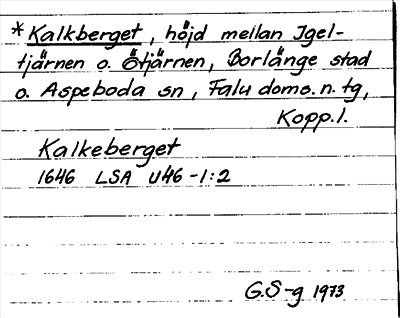 *Kalkberget, höjd mellan Igel-
tjärnen o. Ötjärnen, Borlänge stad
o. Aspeboda sn, Falu doms. n. tg,
Kopp. l.
Kalkeberget
1646 LSA U46-1:2
G.S-g 1973